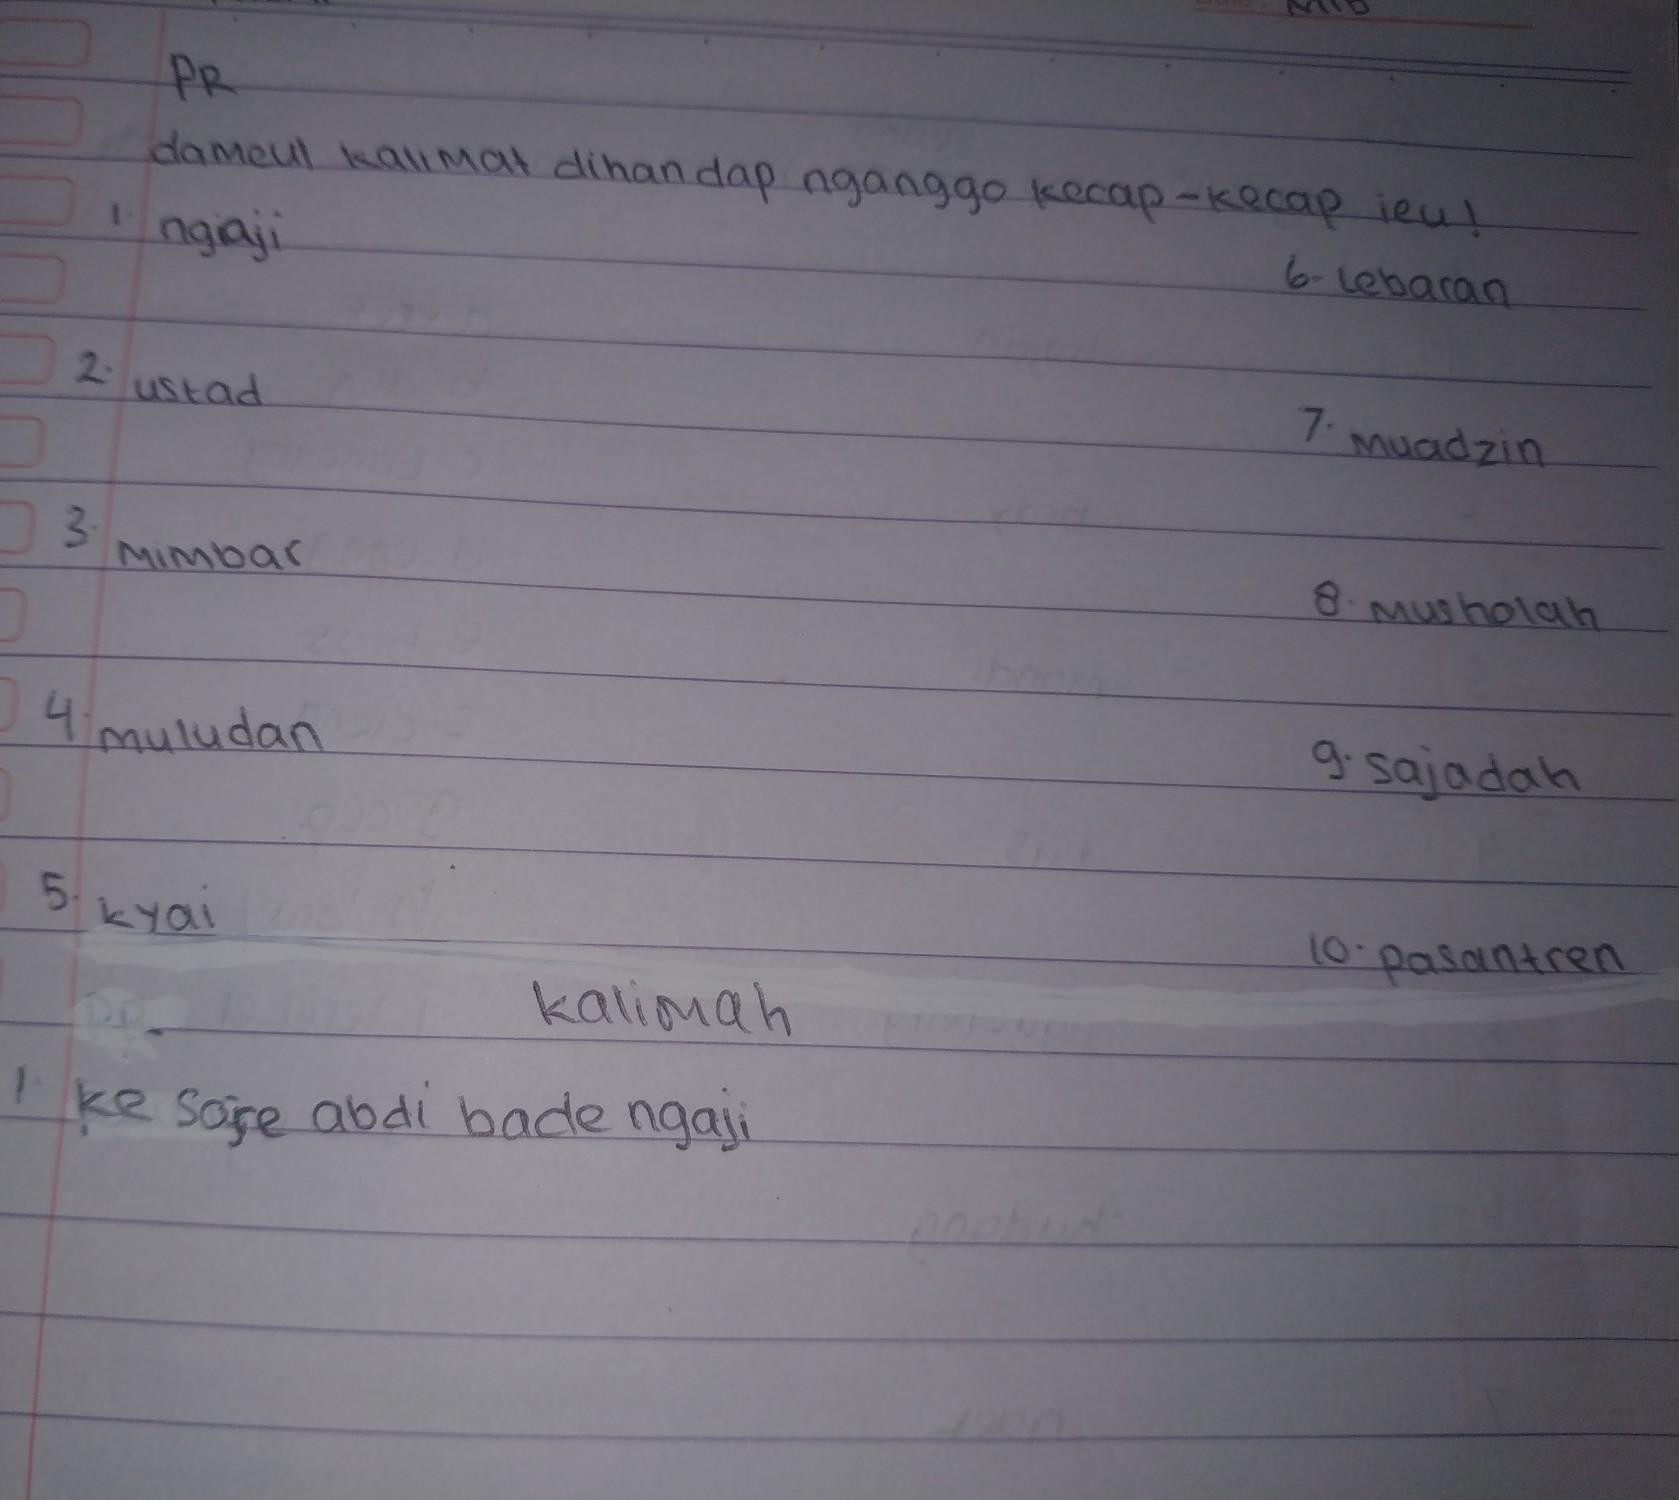 PR
dameul kalimat dihandap nganggo kecap-kecap ieu!
1. ngaji
6. lebaran
2. ustad
7. muadzin
3. mimbar
8. musholah
4. muludan
9. sajadah
5. kyai
10. pasantren
kalimah
1. ke sore abdi bade ngaji